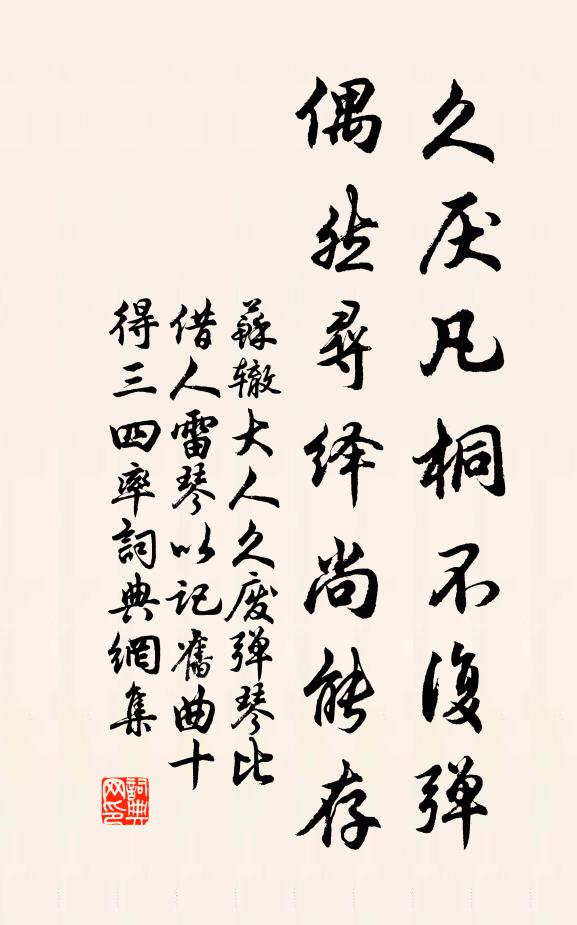 久厌凡桐不復弹
偶然尋绎尚能存
蘇辙大人久废弹琴比
借人雷琴以记舊曲十
得三四率詞典網集
詞典
网印